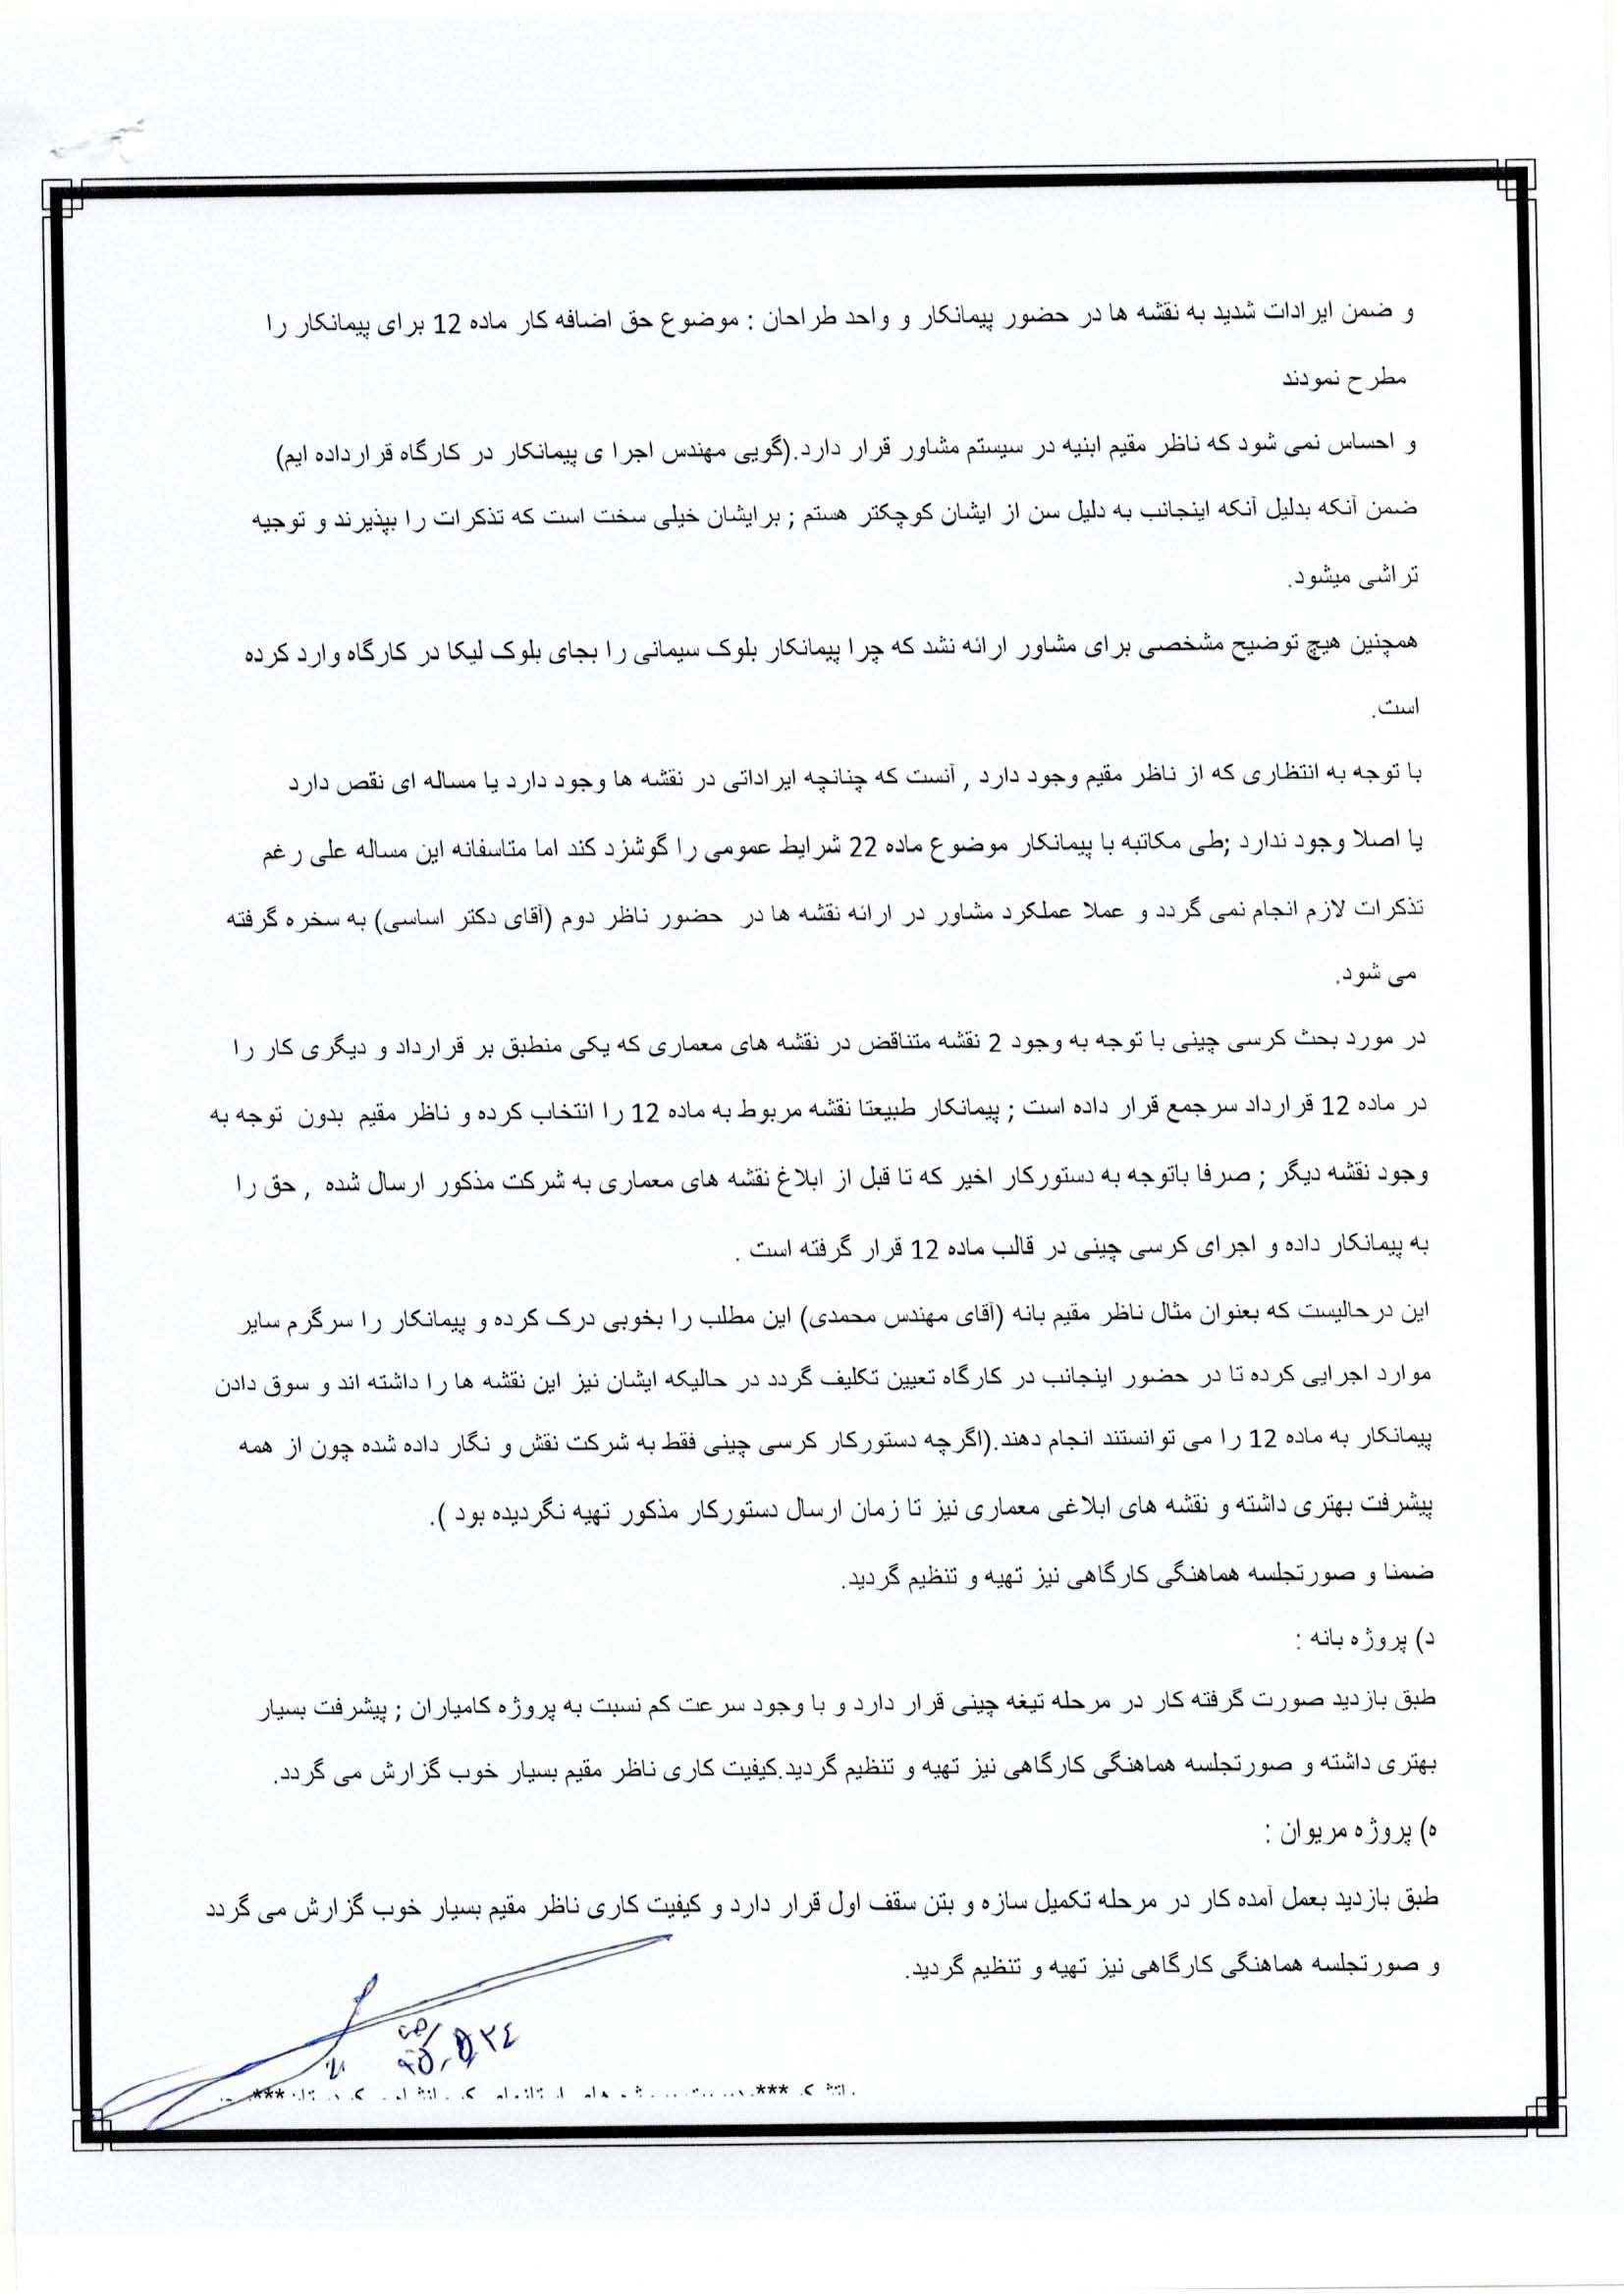 و ضمن ایرادات شدید به نقشه ها در حضور پیمانکار و واحد طراحان : موضوع حق اضافه کار ماده 12 برای پیمانکار را
مطرح نمودند
و احساس نمی شود که ناظر مقیم ابنیه در سیستم مشاور قرار دارد.(گویی مهندس اجرا ی پیمانکار در کارگاه قرارداده ایم)
ضمن آنکه بدلیل آنکه اینجانب به دلیل سن از ایشان کوچکتر هستم ; برایشان خیلی سخت است که تذکرات را بپذیرند و توجیه
تراشی میشود.
همچنین هیچ توضیح مشخصی برای مشاور ارائه نشد که چرا پیمانکار بلوک سیمانی را بجای بلوک لیکا در کارگاه وارد کرده
است.
با توجه به انتظاری که از ناظر مقیم وجود دارد , آنست که چنانچه ایراداتی در نقشه ها وجود دارد یا مساله ای نقص دارد
یا اصلا وجود ندارد ;طی مکاتبه با پیمانکار موضوع ماده 22 شرایط عمومی را گوشزد کند اما متاسفانه این مساله علی رغم
تذکرات لازم انجام نمی گردد و عملا عملکرد مشاور در ارائه نقشه ها در حضور ناظر دوم (آقای دکتر اساسی) به سخره گرفته
می شود.
در مورد بحث کرسی چینی با توجه به وجود 2 نقشه متناقض در نقشه های معماری که یکی منطبق بر قرارداد و دیگری کار را
در ماده 12 قرارداد سرجمع قرار داده است ; پیمانکار طبیعتا نقشه مربوط به ماده 12 را انتخاب کرده و ناظر مقیم بدون توجه به
وجود نقشه دیگر ; صرفا باتوجه به دستورکار اخیر که تا قبل از ابلاغ نقشه های معماری به شرکت مذکور ارسال شده , حق را
به پیمانکار داده و اجرای کرسی چینی در قالب ماده 12 قرار گرفته است .
این درحالیست که بعنوان مثال ناظر مقیم بانه (آقای مهندس محمدی) این مطلب را بخوبی درک کرده و پیمانکار را سرگرم سایر
موارد اجرایی کرده تا در حضور اینجانب در کارگاه تعیین تکلیف گردد در حالیکه ایشان نیز این نقشه ها را داشته اند و سوق دادن
پیمانکار به ماده 12 را می توانستند انجام دهند.(اگرچه دستورکار کرسی چینی فقط به شرکت نقش و نگار داده شده چون از همه
پیشرفت بهتری داشته و نقشه های ابلاغی معماری نیز تا زمان ارسال دستورکار مذکور تهیه نگردیده بود ).
ضمنا و صورتجلسه هماهنگی کارگاهی نیز تهیه و تنظیم گردید.
د) پروژه بانه :
طبق بازدید صورت گرفته کار در مرحله تیغه چینی قرار دارد و با وجود سرعت کم نسبت به پروژه کامیاران ; پیشرفت بسیار
بهتری داشته و صورتجلسه هماهنگی کارگاهی نیز تهیه و تنظیم گردید.کیفیت کاری ناظر مقیم بسیار خوب گزارش می گردد.
ه) پروژه مریوان :
طبق بازدید بعمل آمده کار در مرحله تکمیل سازه و بتن سقف اول قرار دارد و کیفیت کاری ناظر مقیم بسیار خوب گزارش می گردد
و صورتجلسه هماهنگی کارگاهی نیز تهیه و تنظیم گردید.